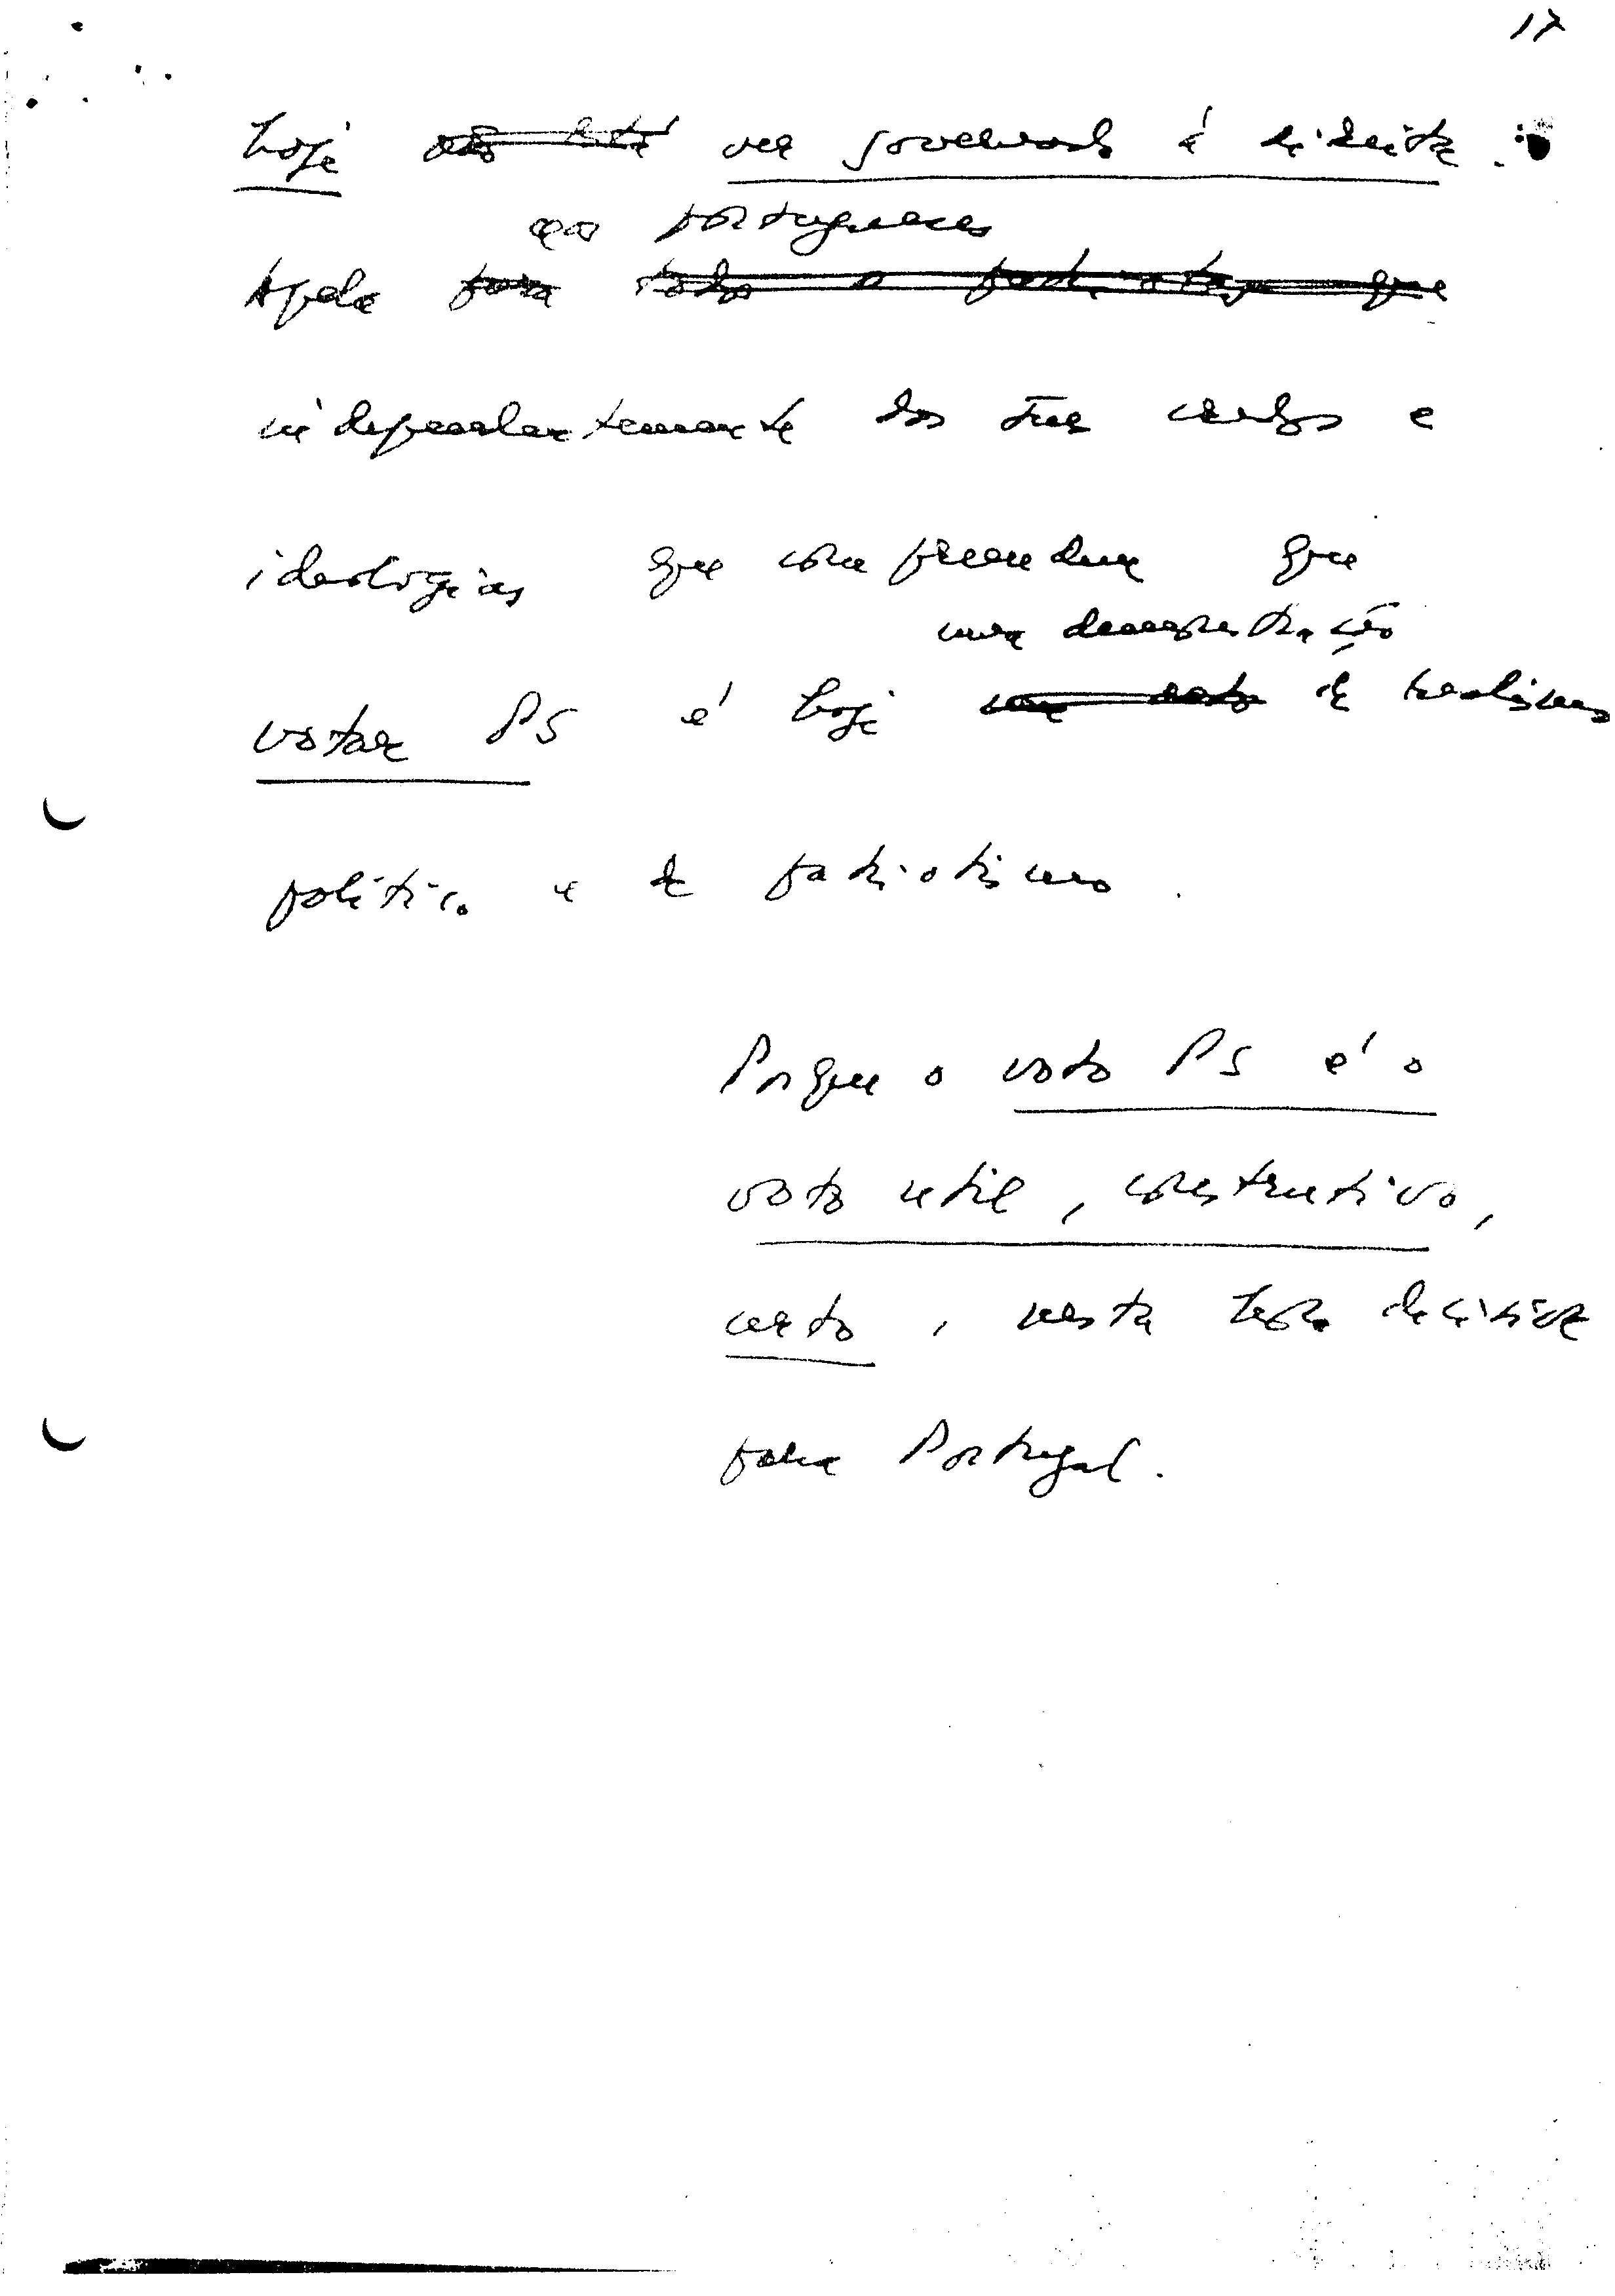 17
hoje não está um governo à direita.
aos portugueses
Apelo para todos o patriotas que
independentemente dos seus credos e
ideologias que compreendem que
uma demonstração
votar PS é hoje um acto de realismo
político e de patriotismo.
Porque o voto PS é o
voto util, construtivo,
certo, nesta hora decisiva
para Portugal.